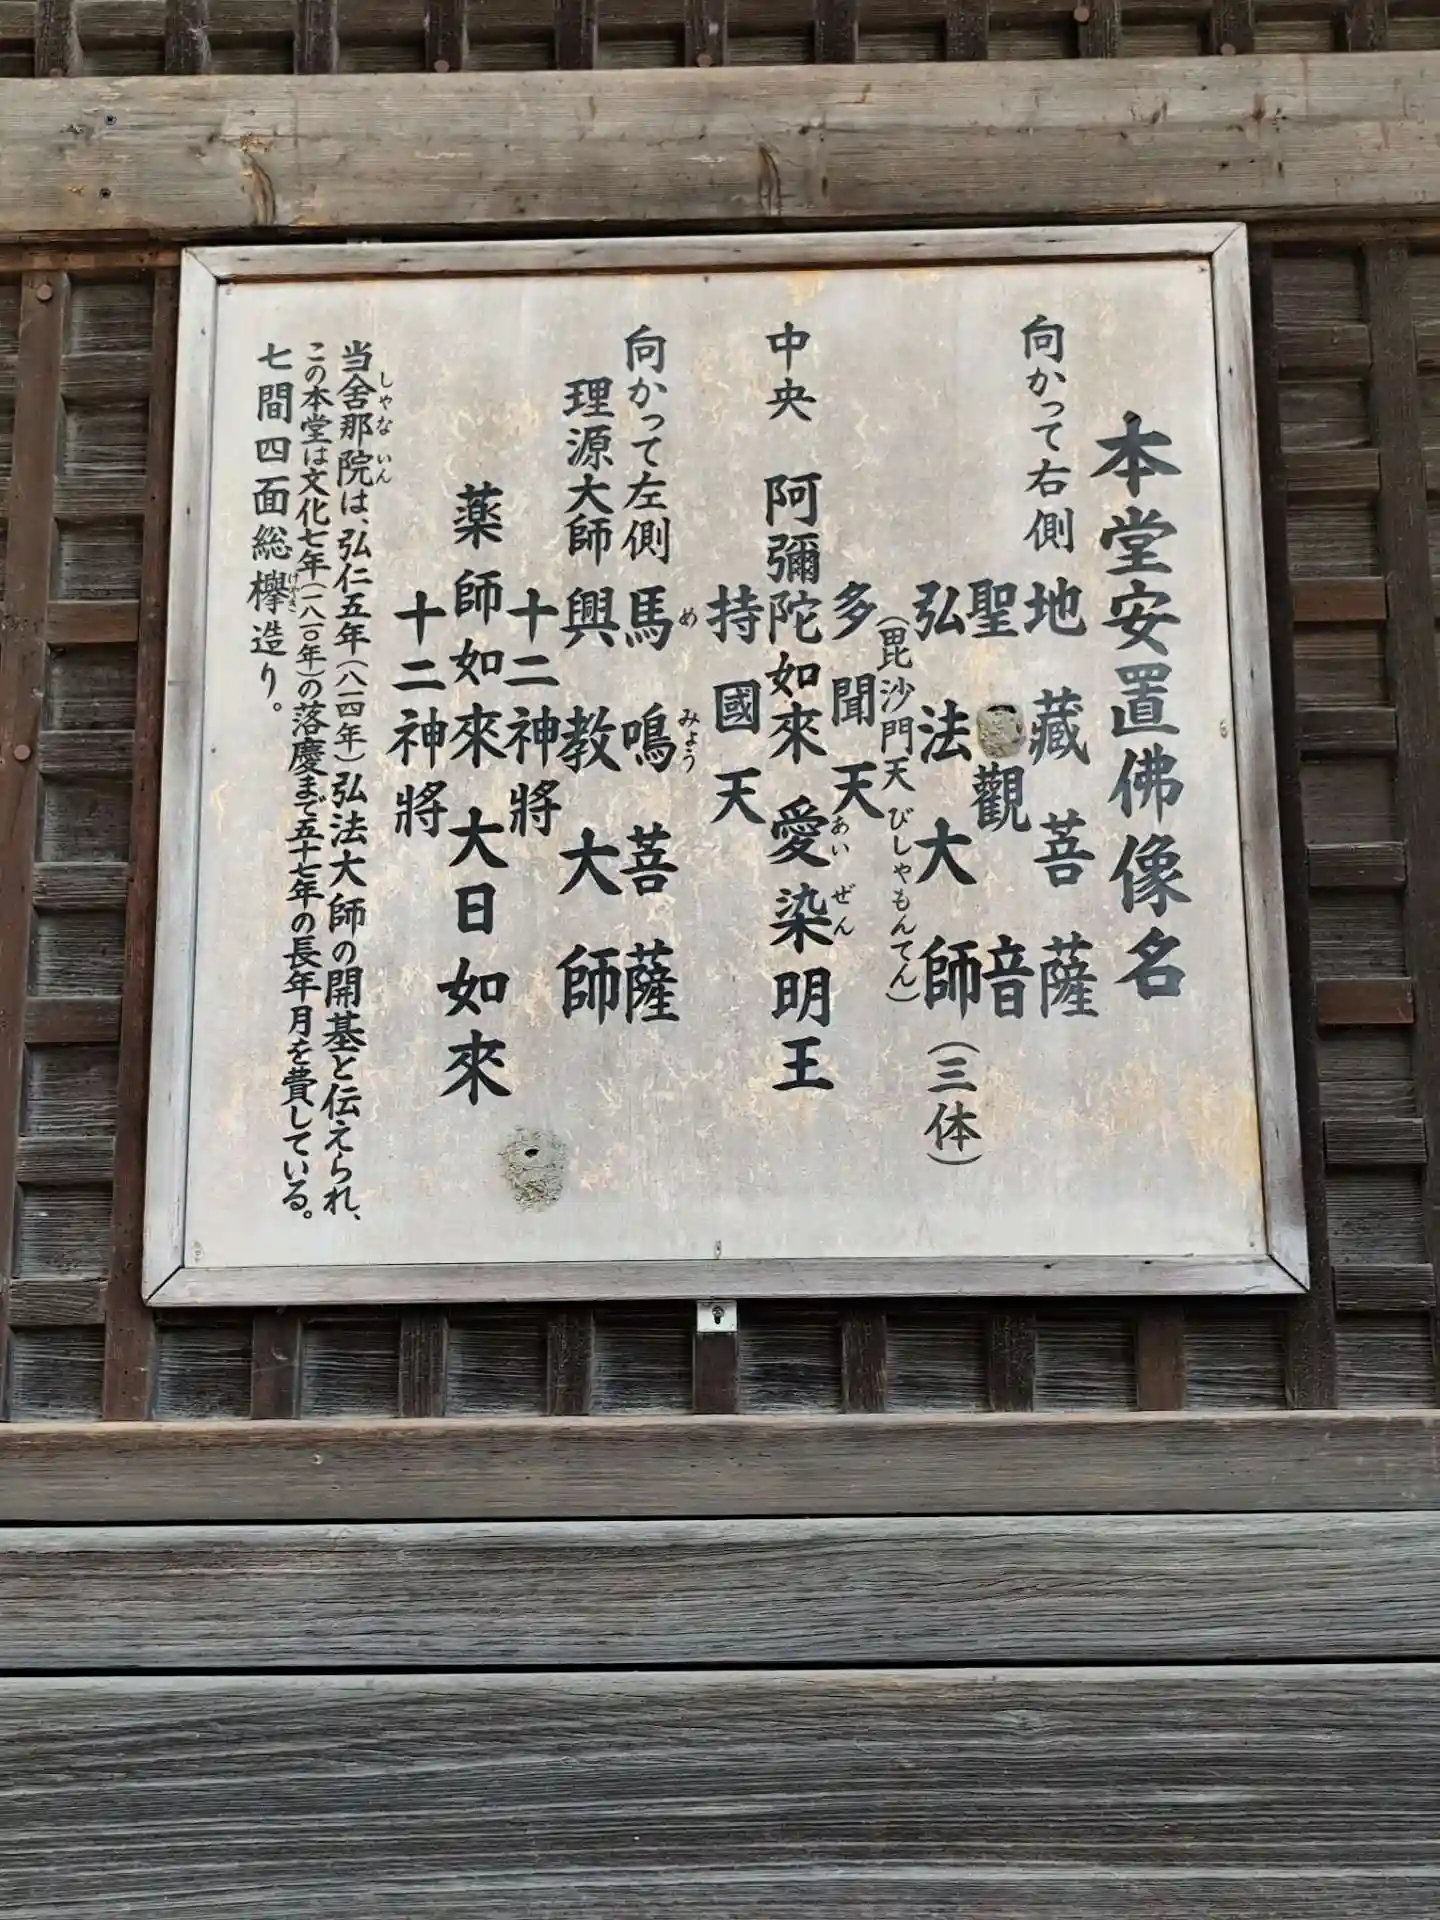 本堂安置佛像名
向かって右側 地藏菩薩
聖觀音
弘法大師(三体)
(毘沙門天 びしゃもんてん)
多聞天
中央 阿彌陀如來 愛染明王
あい ぜん
持國天
向かって左側 馬鳴菩薩
め みょう
理源大師 興教大師
十二神將
薬師如來 大日如來
十二神將
当舎那院は、弘仁五年(八一四年)弘法大師の開基と伝えられ、
しゃないん
この本堂は文化七年(一八一〇年)の落慶まで五十七年の長年月を費している。
七間四面総欅造り。
けやき